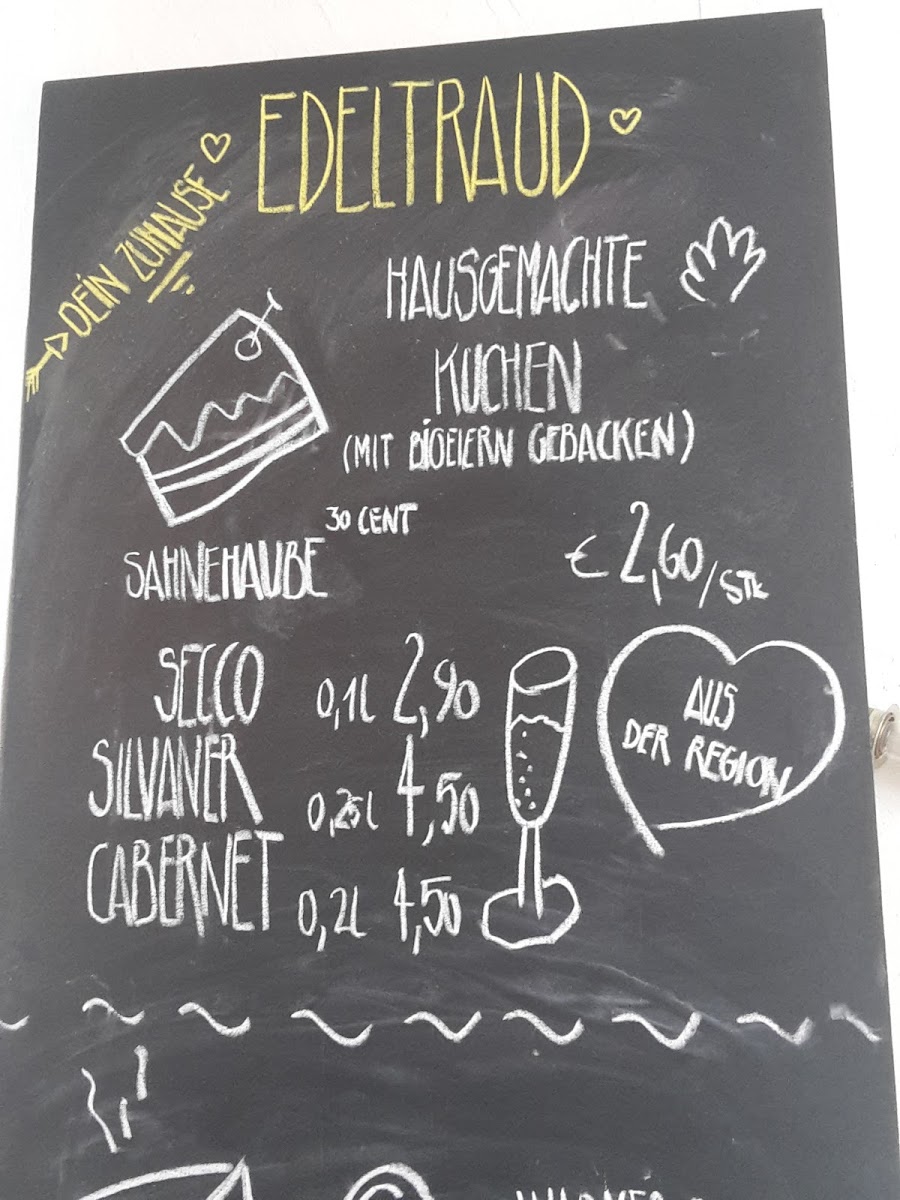 EDELTRAUD
DEIN ZUHAUSE
HAUSGEMACHTE
KUCHEN
(MIT BIOEIERN GEBACKEN)
SAHNEHAUBE 30 CENT
€ 2,60/STK
SECCO 0,1l 2,90
SILVANER 0,25l 4,50
CABERNET 0,2l 4,50
AUS
DER REGION